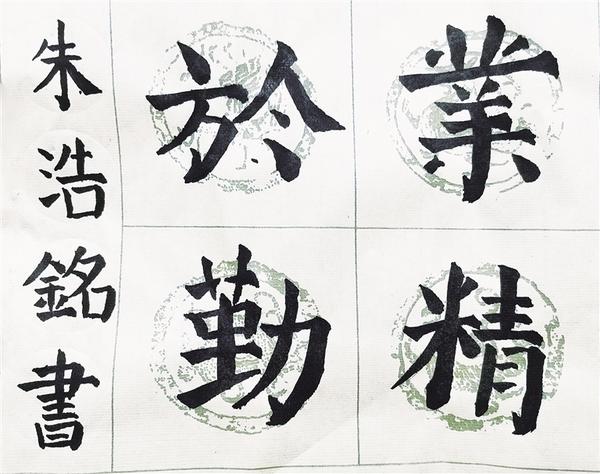 業精
於勤
朱浩銘書